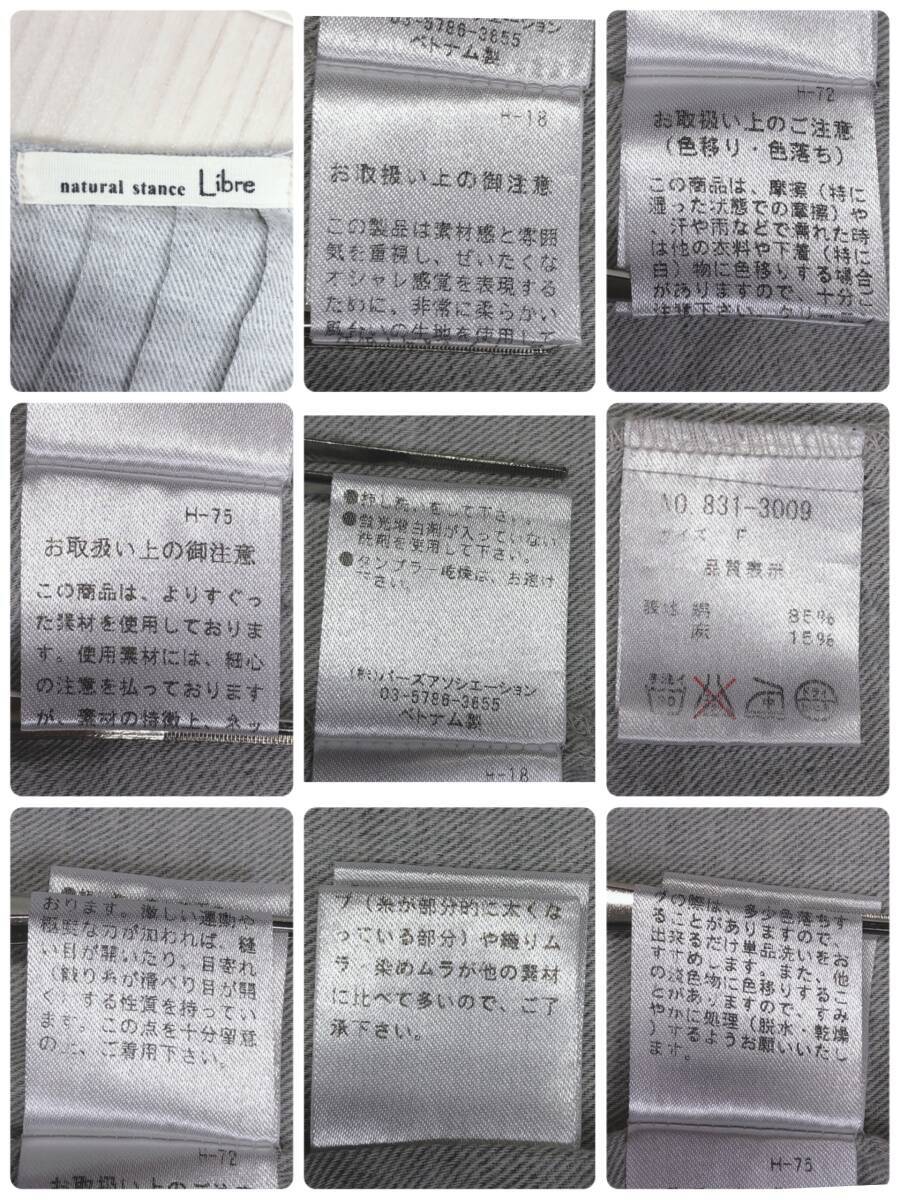 natural stance Libre
03-5786-3655
ベトナム製
H-18
お取扱い上の御注意
この製品は素材感と雰囲
気を重視し、ぜいたくな
オシャレ感覚を表現する
ために、非常に柔らかい
風合いの生地を使用して
H-72
お取扱い上のご注意
(色移り・色落ち)
この商品は、摩擦(特に
湿った状態での摩擦)や
、汗や雨などで濡れた時
は他の衣料や下着(特に
白)物に色移りする場合
がありますので、十分ご
注意下さい。
H-75
お取扱い上の御注意
この商品は、よりすぐっ
た素材を使用しておりま
す。使用素材には、細心
の注意を払っております
が、素材の特徴上、ネッ
●押し洗いをして下さい。
●蛍光増白剤が入っていない
洗剤を使用して下さい。
●タンブラー乾燥は、お避け
下さい。
(株)バーズアソシエーション
03-5786-3655
ベトナム製
H-18
NO. 831-3009
サイズ F
品質表示
綿 85%
麻 15%
手洗イ
30
中
ドライ
おります。激しい運動や
極度な力が加われば、縫
い目が開いたり、目寄れ
(織り糸が滑べり目が開
く)する性質を持ってい
ます。この点を十分留意
の上、ご着用下さい。
H-72
お取扱い上のご注意
プ(糸が部分的に太くな
っている部分)や織りム
ラ、染めムラが他の素材
に比べて多いので、ご了
承下さい。
ます。
H-75